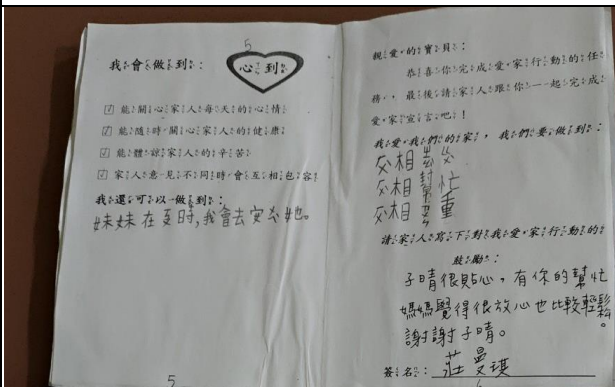 5
我會做到：
心到
☑ 能關心家人每天的心情
☑ 能隨時關心家人的健康
☑ 能體諒家人的辛苦
☑ 家人意見不同時會互相包容
我還可以做到：
妹妹在哭時,我會去安ㄨ她。
5
親愛的寶貝：
恭喜你完成愛家行動的任
務，最後請家人跟你一起完成
愛家宣言吧！
我愛我們的家，我們要做到：
互相
互相幫忙
互相 重
請家人寫下對我愛家行動的
鼓勵：
子晴很貼心，有你的幫忙
媽媽覺得很放心也比較輕鬆。
謝謝子晴。
簽名：莊曼琪